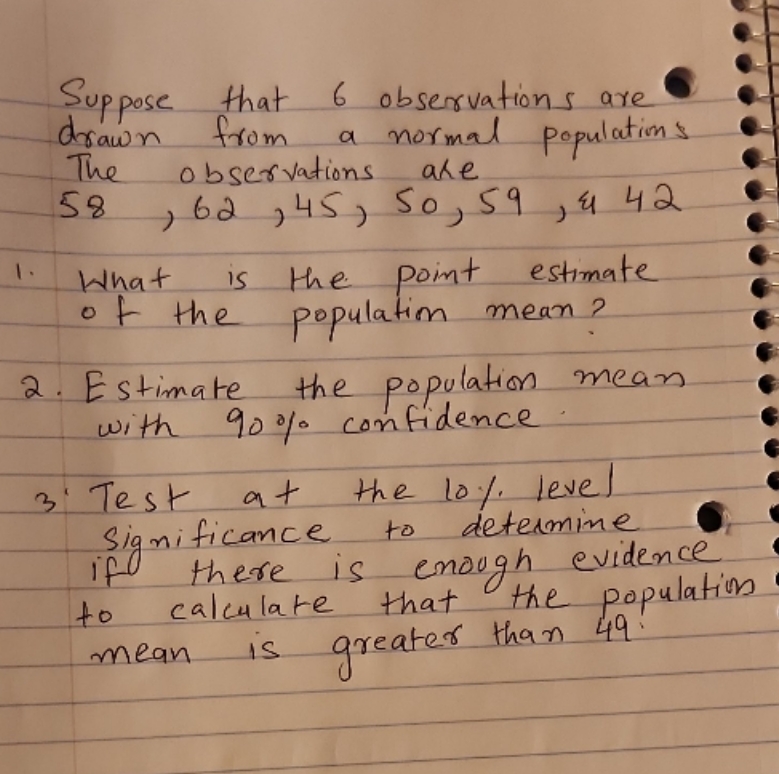 Suppose that 6 observations are
drawn from a normal populations
The observations are
58 , 62 , 45 , 50 , 59 , & 42
1. What is the point estimate
of the population mean ?
2. Estimate the population mean
with 90% confidence .
3. Test at the 10%. level
significance to determine
if there is enough evidence
to calculate that the population
mean is greater than 49.